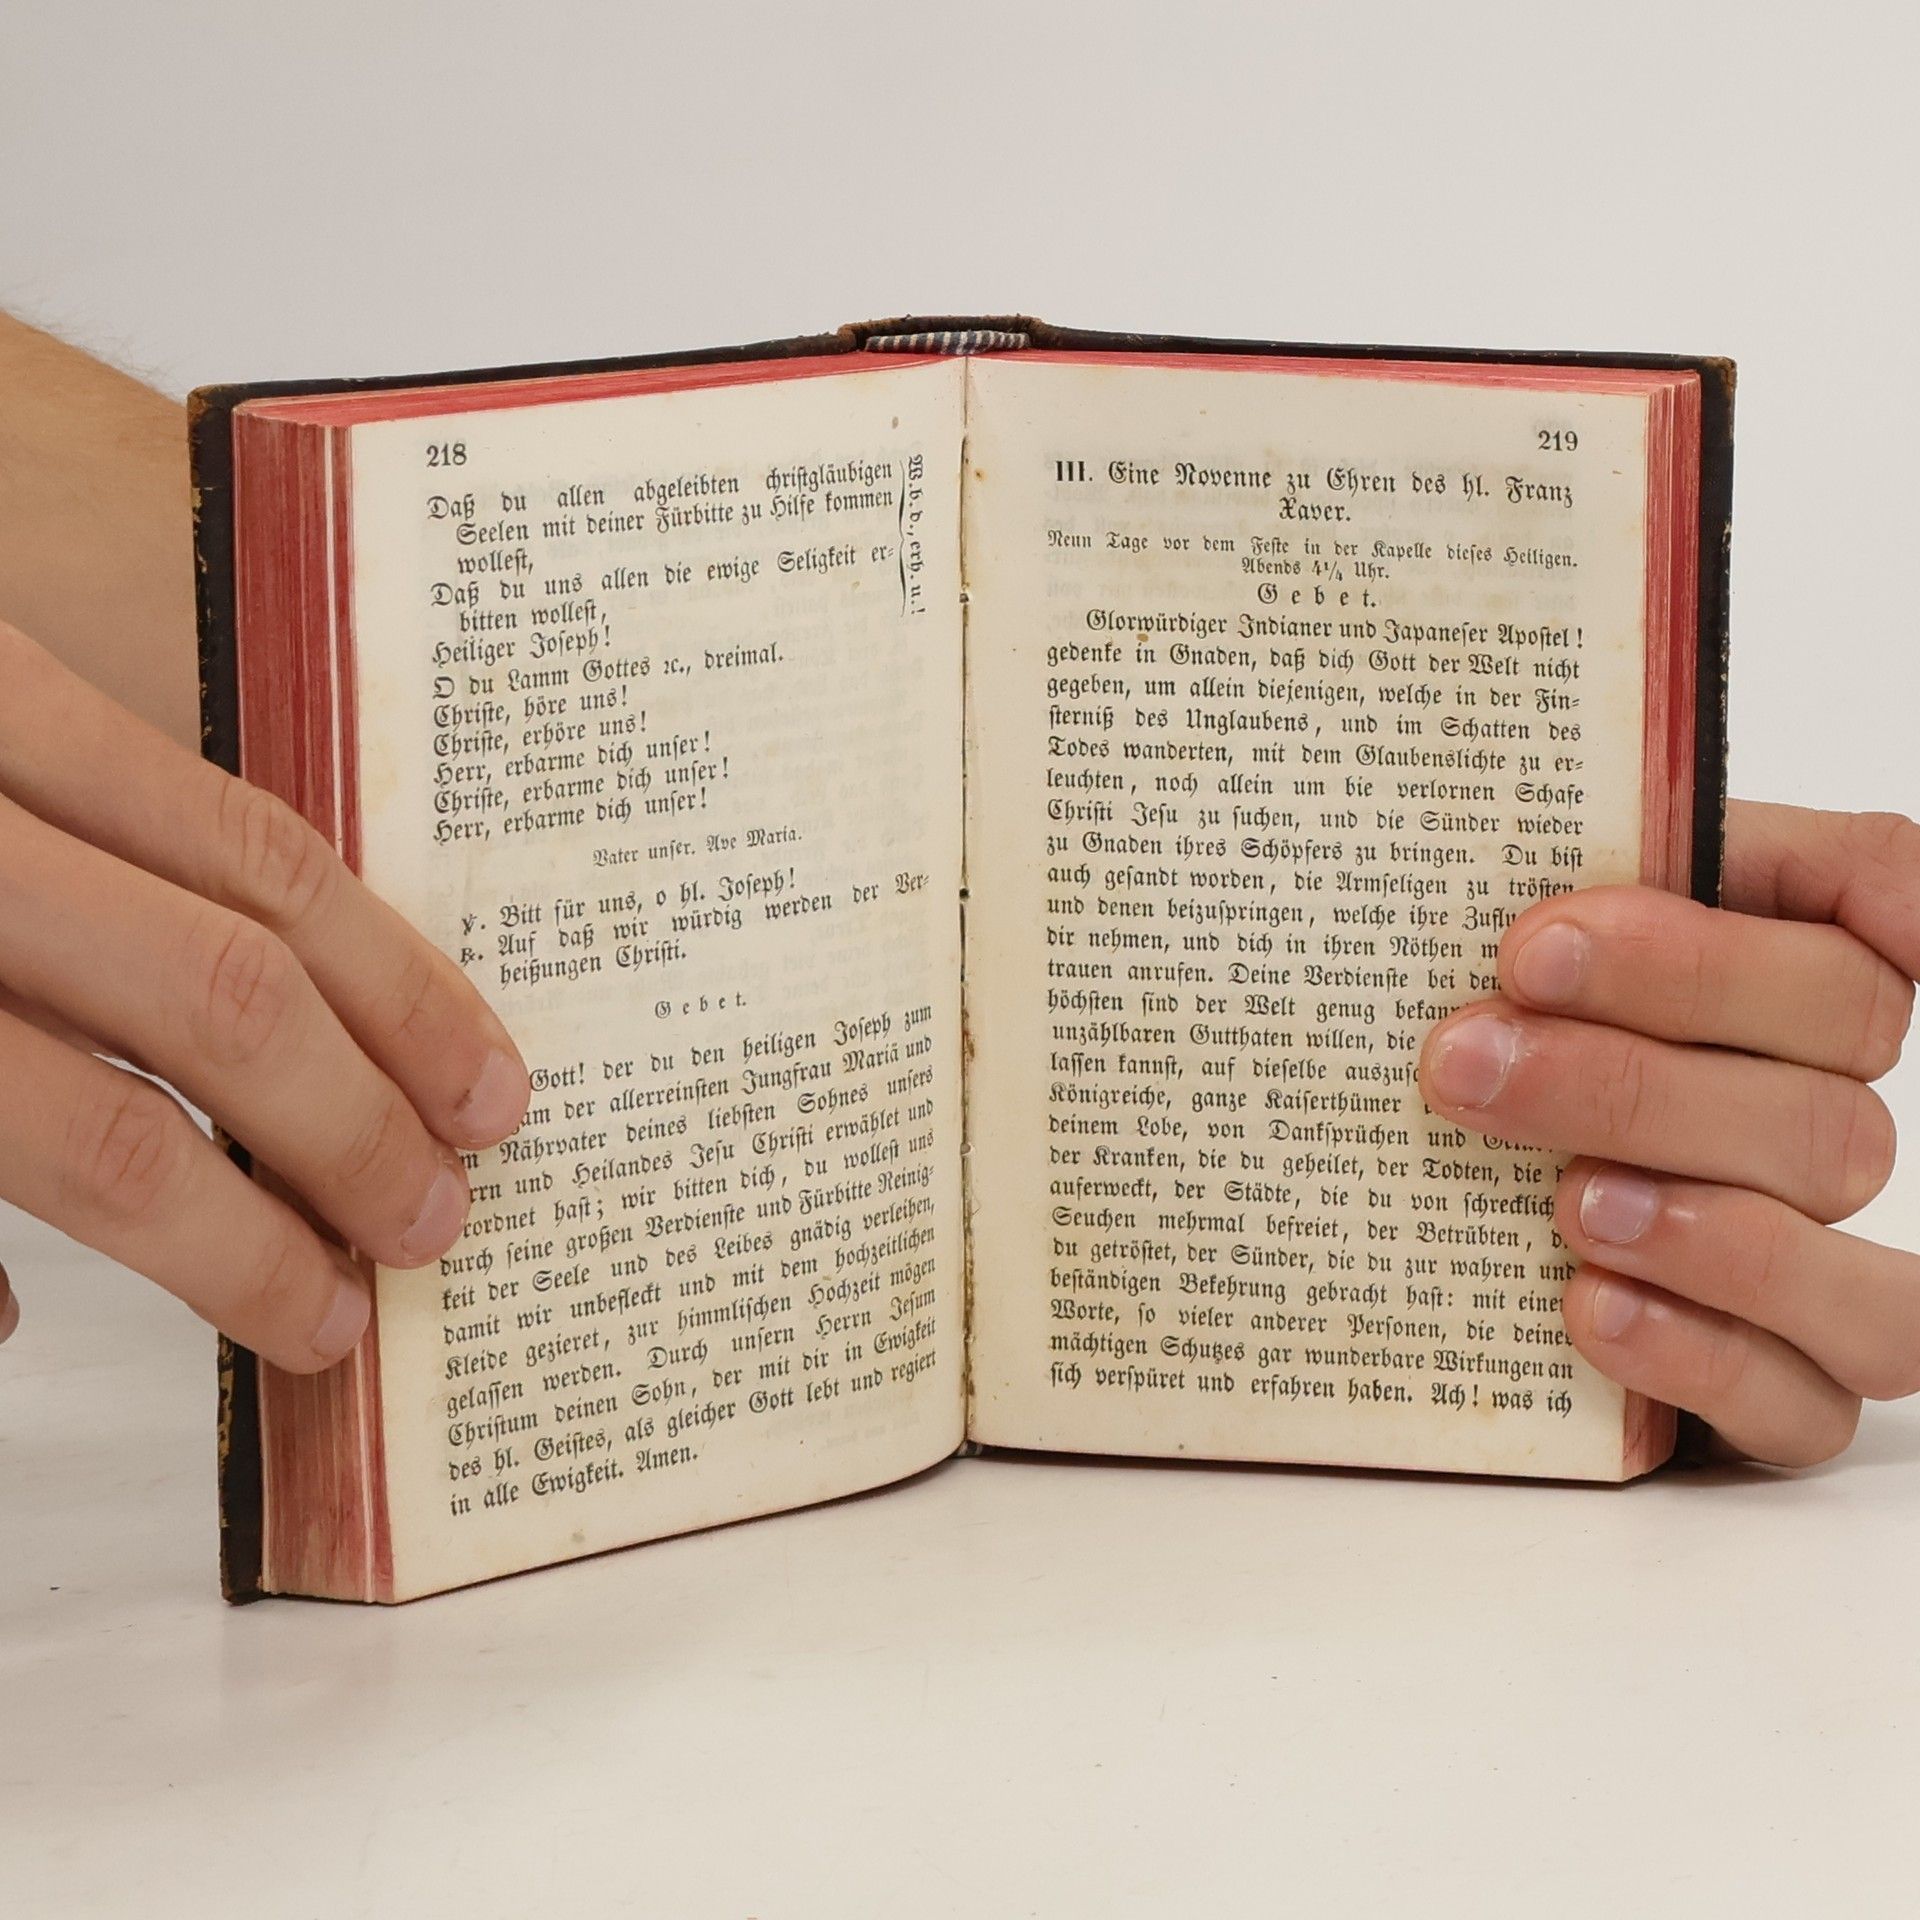 218
Daß du allen abgeleibten christgläubigen
Seelen mit deiner Fürbitte zu Hilfe kommen
wollest,
Daß du uns allen die ewige Seligkeit er=
bitten wollest,
W. b. d., erh. u.!
Heiliger Joseph!
O du Lamm Gottes ꝛc., dreimal.
Christe, höre uns!
Christe, erhöre uns!
Herr, erbarme dich unser!
Christe, erbarme dich unser!
Herr, erbarme dich unser!
Vater unser. Ave Maria.
℣. Bitt für uns, o hl. Joseph!
℟. Auf daß wir würdig werden der Ver=
heißungen Christi.
Gebet.
Gott! der du den heiligen Joseph zum
der allerreinsten Jungfrau Mariä und
Nährvater deines liebsten Sohnes unsers
und Heilandes Jesu Christi erwählet und
hast; wir bitten dich, du wollest uns
durch seine großen Verdienste und Fürbitte Reinig=
keit der Seele und des Leibes gnädig verleihen,
damit wir unbefleckt und mit dem hochzeitlichen
Kleide gezieret, zur himmlischen Hochzeit mögen
gelassen werden. Durch unsern Herrn Jesum
Christum deinen Sohn, der mit dir in Ewigkeit
des hl. Geistes, als gleicher Gott lebt und regiert
in alle Ewigkeit. Amen.
219
III. Eine Novenne zu Ehren des hl. Franz
Xaver.
Neun Tage vor dem Feste in der Kapelle dieses Heiligen.
Abends 4¼ Uhr.
Gebet.
Glorwürdiger Indianer und Japaneser Apostel!
gedenke in Gnaden, daß dich Gott der Welt nicht
gegeben, um allein diejenigen, welche in der Fin=
sterniß des Unglaubens, und im Schatten des
Todes wanderten, mit dem Glaubenslichte zu er=
leuchten, noch allein um bie verlornen Schafe
Christi Jesu zu suchen, und die Sünder wieder
zu Gnaden ihres Schöpfers zu bringen. Du bist
auch gesandt worden, die Armseligen zu trösten
und denen beizuspringen, welche ihre
dir nehmen, und dich in ihren Nöthen
trauen anrufen. Deine Verdienste bei
höchsten sind der Welt genug
unzählbaren Gutthaten willen, die
lassen kannst, auf dieselbe
Königreiche, ganze Kaiserthümer
deinem Lobe, von Danksprüchen und
der Kranken, die du geheilet, der Todten, die
auferweckt, der Städte, die du von
Seuchen mehrmal befreiet, der Betrübten,
du getröstet, der Sünder, die du zur wahren und
beständigen Bekehrung gebracht hast: mit einem
Worte, so vieler anderer Personen, die deines
mächtigen Schutzes gar wunderbare Wirkungen an
sich verspüret und erfahren haben. Ach! was ich